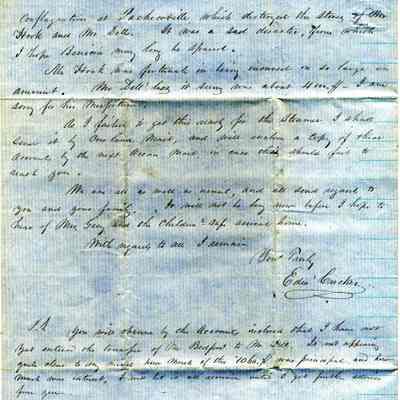 conflagration at which destroyed the Stores of Mr
Hook and Mr Dell. It was a sad disaster, from which
I hope Benicia may long be spared.
Mr Hook was fortunate in being insured on so large an
amount. Mr Dell's loss it being was about I am
sorry for his Misfortune.
As I failed to get this ready for the Steamer I shall
send it by Overland Mail, and will enclose a Copy of these
accounts by the next Ocean mail in case this should fail to
reach you.
We are all as well as usual, and all send regards to
you and your family. It will not be long now before I hope to
hear of Mrs and the Children's safe arrival home.
With regards to all I remain
Yours Truly
Edw
P.S. You will observe by the Accounts enclosed that I have not
yet entered the transfer of the to Mr Dell. It not appearing
quite clear to my mind how much of the was principal and how
much was interest, I will let it all remain until I get further advice
from you